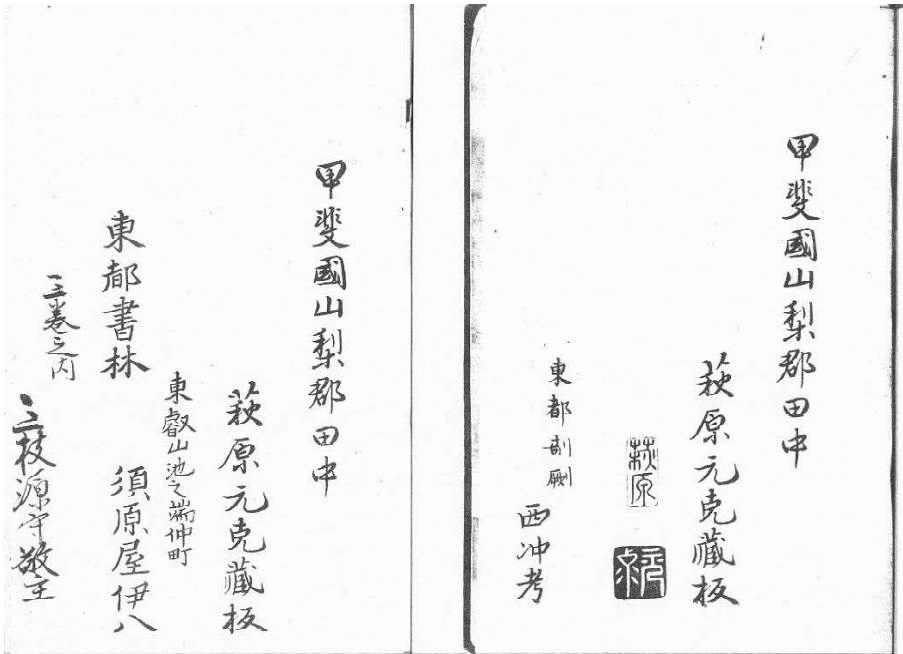 甲斐國山梨郡田中
萩原元克藏板
萩原
東都剞劂
西冲考
甲斐國山梨郡田中
萩原元克藏板
東叡山池之端仲町
東都書林 須原屋伊八
三巻之内
三枝源守敬主